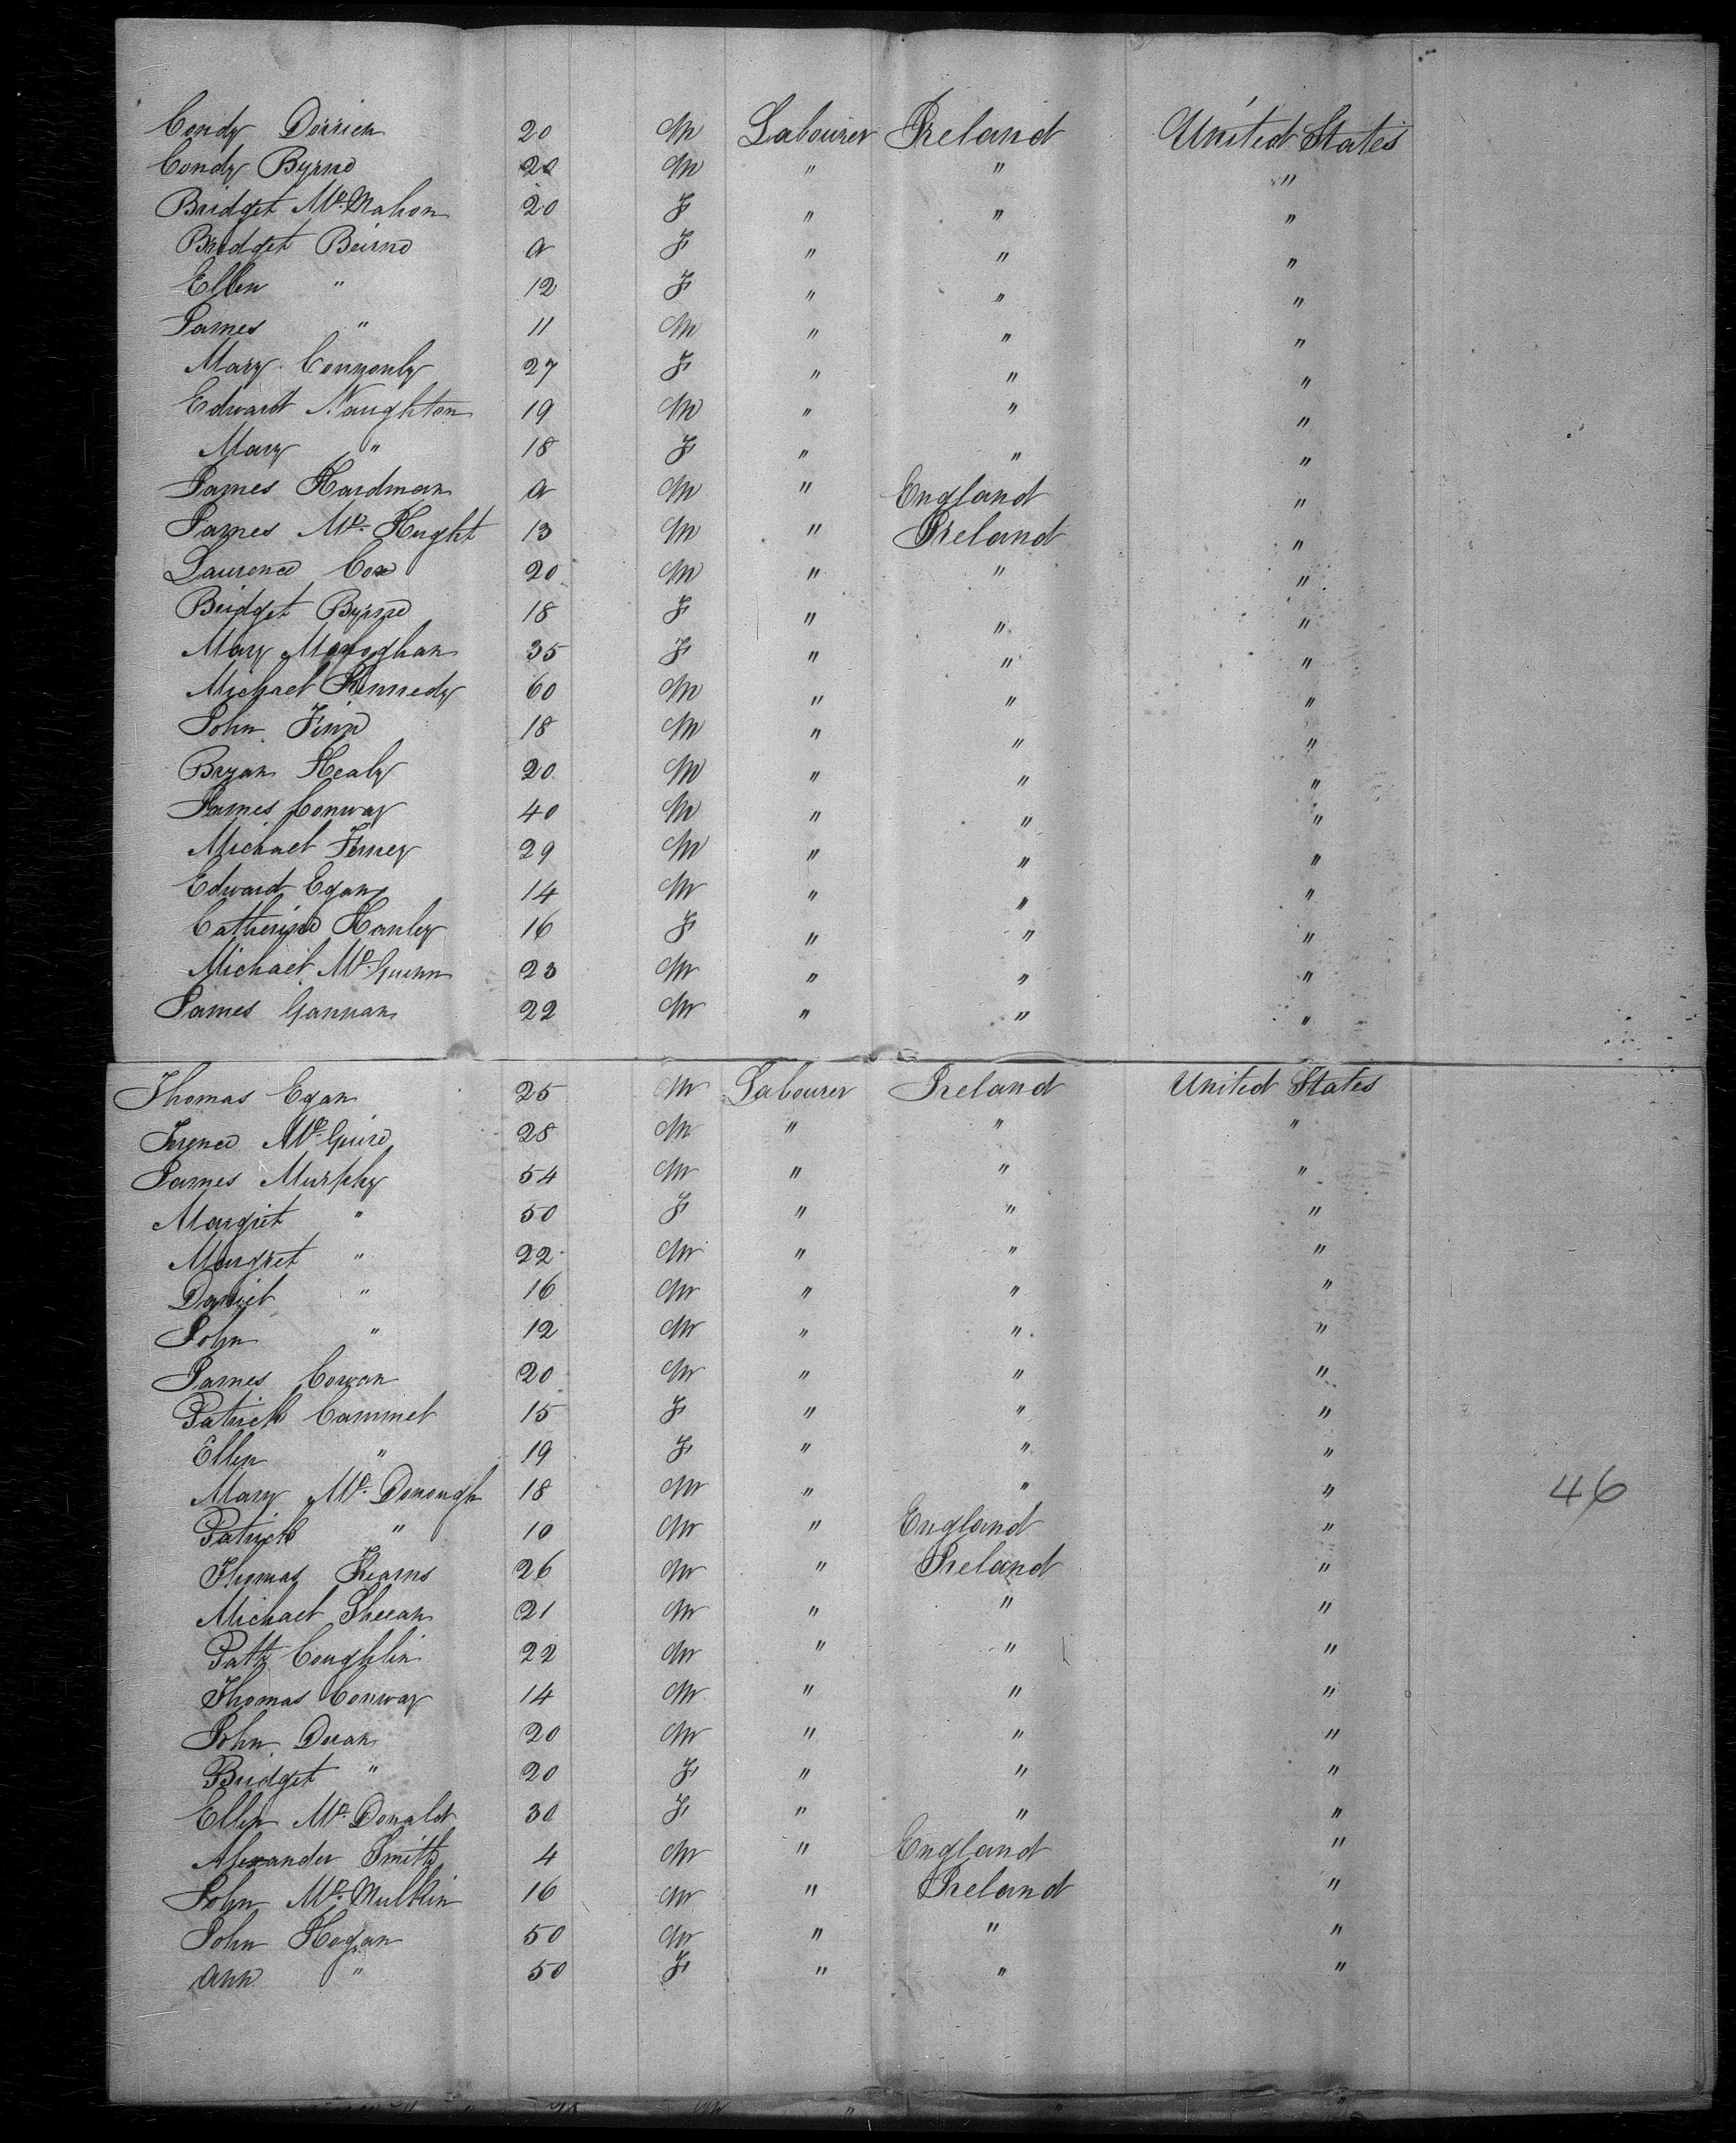 Condy Dorrien 20 M Labourer Ireland United States
Condy Byrne 20 M " " "
Bridget Mc Mahon 20 F " " "
Bridget Beirne a F " " "
Ellen " 12 F " " "
James " 11 M " " "
Mary Connonly 27 F " " "
Edward Naughton 19 M " " "
Mary " 18 F " " "
James Hardman a M " England "
James Mc Hught 13 M " Ireland "
Laurence Cox 20 M " " "
Bridget Byrne 18 F " " "
Mary Monoghan 35 F " " "
Michael Kennedy 60 M " " "
John Finn 18 M " " "
Bryan Healy 20 M " " "
James Conway 40 M " " "
Michael 29 M " " "
Edward Egan 14 M " " "
Catherine Hanley 16 F " " "
Michael Mc Guinn 23 M " " "
James Gannan 22 M " " "
Thomas Egan 25 M Labourer Ireland United States
Terence Mc Guire 28 M " " "
James Murphy 54 M " " "
Margret " 50 F " " "
Margret " 22 M " " "
Daniel " 16 M " " "
John " 12 M " " "
James Cowan 20 M " " "
Patrick Cammel 15 F " " "
Ellen " 19 F " " "
Mary Mc Donough 18 M " " "
46
Patrick " 10 M " England "
Thomas Kearns 26 M " Ireland "
Michael Sheean 21 M " " "
Patk Coughlin 22 M " " "
Thomas Conway 14 M " " "
John Doran 20 M " " "
Bridget " 20 F " " "
Ellen Mc Donald 30 F " " "
Alexander Smith 4 M " England "
John Mc Mulkin 16 M " Ireland "
John Hogan 50 M " " "
Ann " 50 F " " "